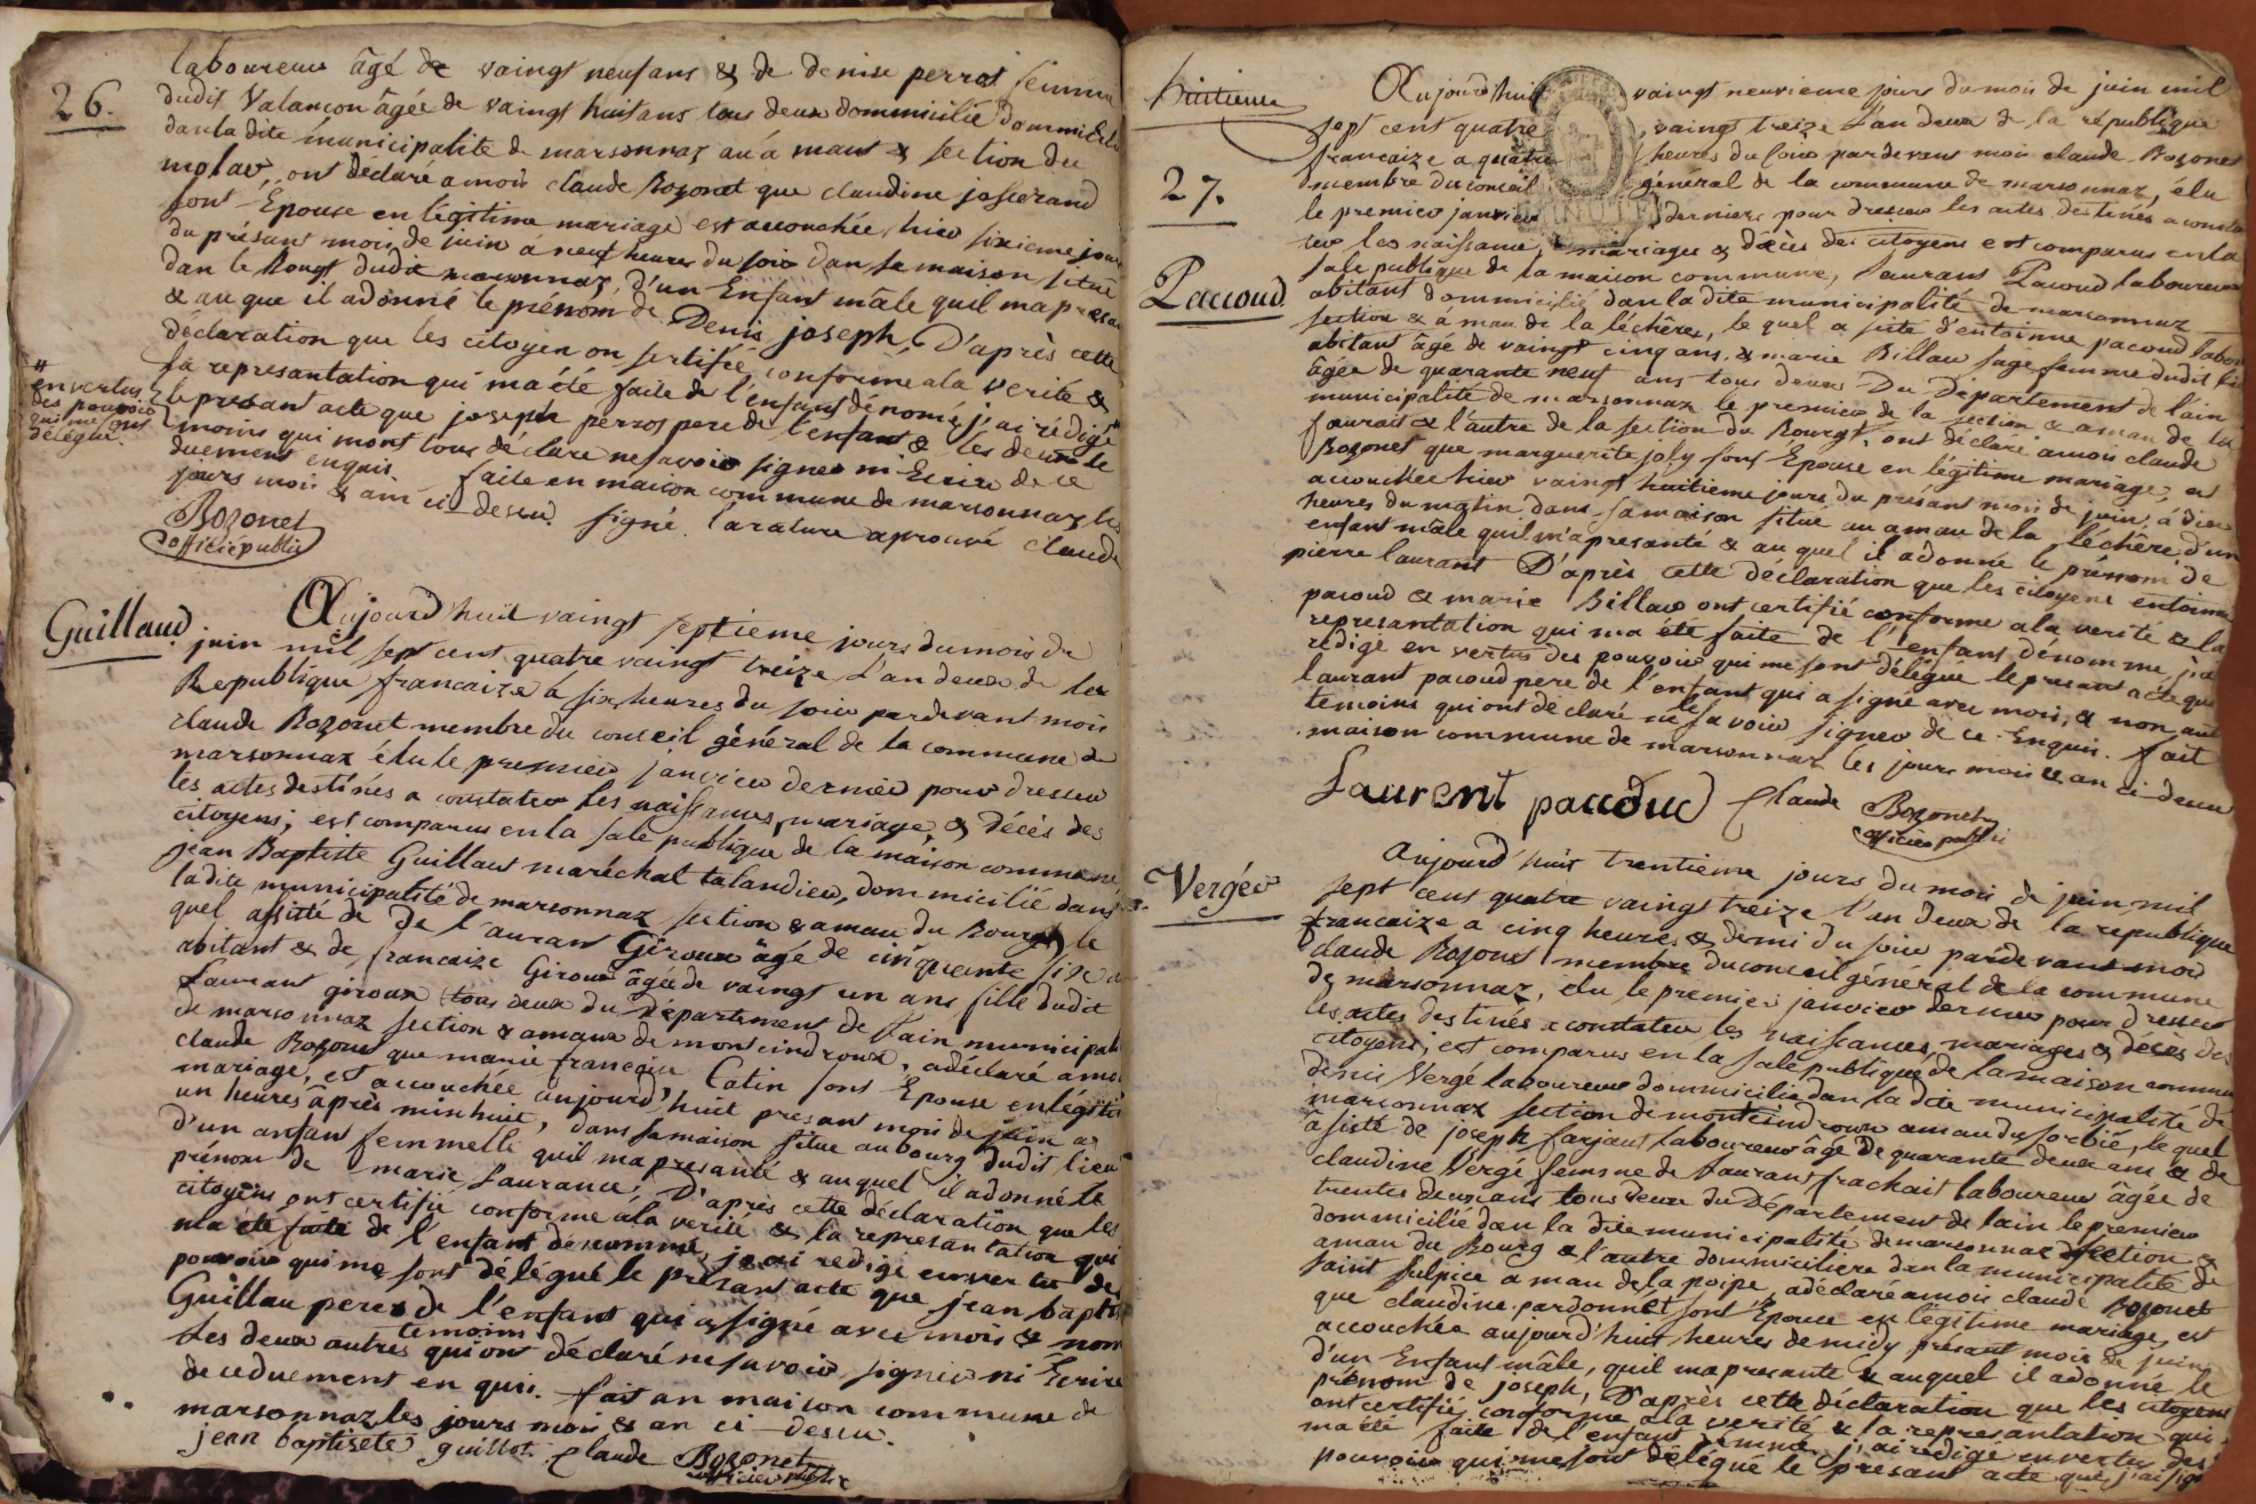 26.
laboureur âgé de vaingt neuf ans & de denise perrot femme
dudit Valançon âgée de vaingt huit ans tous deux dommicilié
dan la dite municipalité de marsonnaz au a maut & section du
molar, ont déclaré a mois claude Bozonet que claudine josserand
sont Epouse en légitime mariage est accouchée hier sixieme jour
du présant mois de juin a neuf heures du soir dan sa maison situé
dan le Bourg dudit marsonnaz, d'un Enfant mâle quil ma presan
& au que il adonné le prénom de Denis joseph. D'après cette
déclaration que les citoyen on sertifié conforme ala verité &
la represantation qui ma été faite de l'enfant dénomé, j'ai rédigé
#
en vertus
des pouvoir
qui me sont
délégué.
le presant acte que joseph perrot pere de l'enfant & les deux te
moins qui mont tous déclaré ne savoir signer ni Ecrire de ce
duement enquis. faite en maison commune de marsonnaz les
jours moi & an ci-desu. signé l'arature aprouvé claude
Bozonet
officié public
Guillaud.
Aujourd'huit vaingt septieme jours du mois de
juin mil sept cent quatre vaingt treize L'an deux de la
Republique francaize à six heures du soir pardevant mois
claude Bozonet membre du conseil général de la commune de
marsonnaz élu le premier janvier dernier pour dresser
les actes destinés a constater les naissances, mariage, & décès des
citoyens; est comparus en la sale publique de la maison commune
jean Baptiste Guillaut maréchal talandier, dommicilié dans
la dite municipalité de marsonnaz section & amau du Bourgt, le
quel assisté de de l'aurant Giroux âgé de cinquante six a
abitant & de francaize Giroux âgée de vaingt un ans fille dudit
Laurant giroux tous deux du Département de l'ain municipali
de marsonnaz section & amaux de montcindroux, a déclaré a moi
claude Bozonet que marie francoise Catin sont Epouse en légiti
mariage, est accouchée aujourd'huit presant mois de juin a
un heures âprès minhuit, dans sa maison situe au bourg dudit lieu
d'un anfant femmelle quil ma presanté & auquel il adonné le
prénom de marie Laurance; D'après cette déclaration que les
citoyens ont certifié conforme ala verité & la represantation qui
ma été faite de l'enfant dénommé, je ai redigé en vertu des
pouvoir qui me sont délégué le présant acte que jean baptis
Guillau pere de l'enfant qui a signé avec mois & non
les deux autres temoins qui ont déclaré ne savoir signer ni Ecrire
de ce duement en quis. fait an maison commune de
marsonnaz les jours mois & an ci-desu.
jean baptisete guillot. Claude Bozonet
officier public
huitieme
27.
Paccoud
Aujourd'huit vaingt neuvieme jours du mois de juin mil
sept cent quatre vaingt treize L'an deux de la république
francaize a quatre heures du soir pardevant mois claude Bozonet
membre du conseil général de la commune de marsonnaz, élu
le premier janvier derniers pour dresser les actes destinés a consta
ter les naissance, mariages & décès des citoyens est comparus en la
sale publique de la maison commune, Laurant Pacoud laboureur
abitant dommicilié dan la dite municipalité de marsonnaz
section & á mau de la léchêre, le quel a siste d'entoinne pacoud labou
abitant âgé de vaingt cinq ans, & marie Billau sage femme dudit
âgée de quarante neuf ans tous deux Du Département de lain
municipalité de marsonnaz le premier de la section & amau de la
faurait & l'autre de la section du Bourgt, ont déclaré amois claude
Bozonet que marguerite joly sont Epouse en légitime mariage, est
accouchée hier vaingt huitieme jours du présant mois de juin á dix
heures du matin dans sa maison situé au amau de la léchêre d'un
enfant mâle quil m'a presanté & au quel il adonné le prénom de
pierre laurant D'après cette déclaration que les citoyens entoinne
pacoud & marie Billau ont certifié conforme ala verité & la
represantation qui ma été faite de l'enfant dénomme, j'ai
rédigé en vertus des pouvoir qui me sont délégué le presant acte que
laurant pacoud pere de l'enfant qui a signé avec mois, & non aut
temoins qui ont déclaré ne savoir signer de ce Enquis. fait
maison commune de marsonnaz les jours mois & an ci-deux
Laurent paccoud Claude Bozonet
officier public
Vergér
Aujourd'huit trentieme jours du mois de juin mil
sept cent quatre vaingt treize l'an deux de la republique
francaize a cinq heures & demi du soir pardevant mois
claude Bozonet membre du conseil général de la commune
de marsonnaz, élu le premier janvier dernier pour dresser
les actes destinés a constater les naissances, mariages & déces des
citoyens; est comparus en la sale publique de la maison commune
denis Vergé laboureur dommicilié dan la dite municipalité de
marsonnaz section de montcindroux amau du sorbié, le quel
âsisté de joseph farjaut laboureur âgé De quarante deux ans & de
claudine Vergé femme de Laurant frachait laboureur âgée de
trentes deux ans tous deux du Département de lain le premier
dommicilié dan la dite municipalité de marsonnaz section &
amau du Bourg & l'autre dommiciliere dan la municipalité de
saint sulpice a mau de la poipe, a déclaré amois claude Bozonet
que claudine pardonnet sont Epouce en légitime mariage, est
accouchée aujourd'huit heures demidy présant mois de juin
d'un Enfant mâle, quil ma presante & auquel il adonné le
prénom de joseph, D'après cette déclaration que les citoyens
ont certifié conforme ala verité & la represantation qui
ma été faite de l'enfant j'ai redigé en vertu des
pouvoir qui me sont délégué le présant acte que j'ai signé